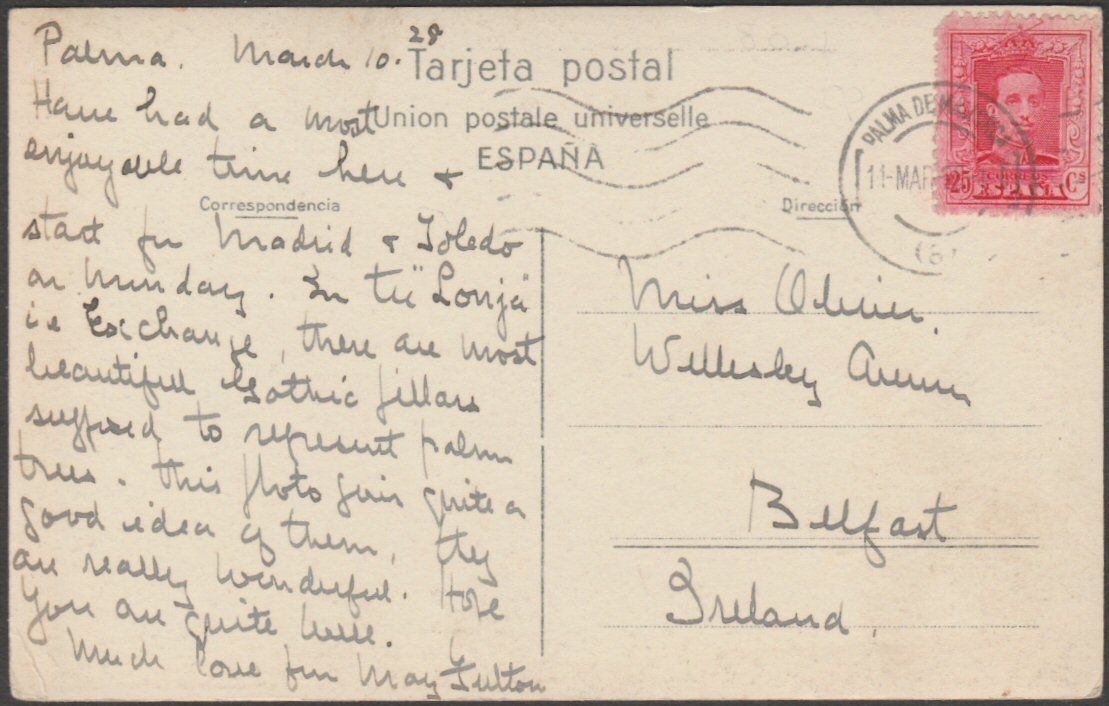 Palma. March 10. 28
Tarjeta postal
Union postale universelle
ESPAÑA
Correspondencia
Dirección
Have had a most
enjoyable time here &
start for Madrid & Toledo
on Munday. In the "Lonja"
i.e Exchange, there are most
beautiful Gothic pillars
supposed to represent palm
trees. This photo gives quite a
good idea of them, they
are really wonderful. Hope
you are quite well.
Much love from May Fulton
Miss Olivier.
Wellesley Avenue
Belfast
Ireland.
PALMA DE
11-MAR
25 CORREOS Cs
ESPAÑA